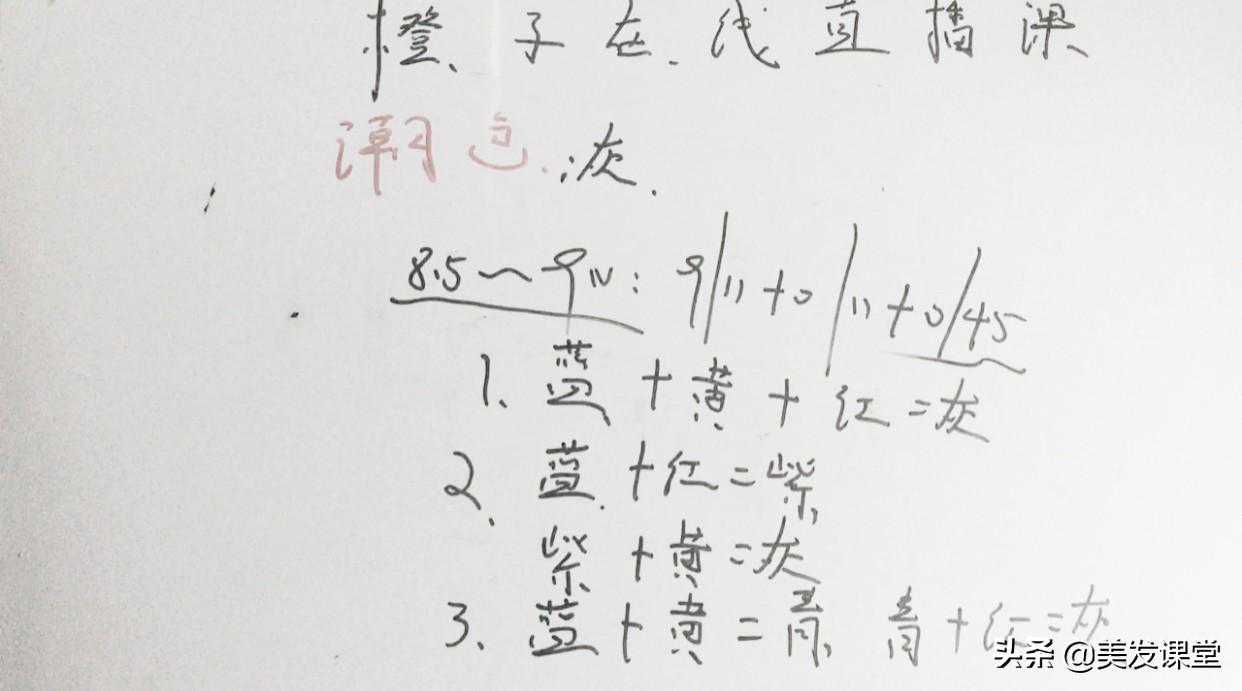 橙子在线直播课
潮色:灰.
8.5~9度: 9/11+0/11+0/45
1. 蓝+黄+红=灰
2. 蓝+红=紫
紫+黄=灰
3. 蓝+黄=青 青+红=灰
头条 @美发课堂